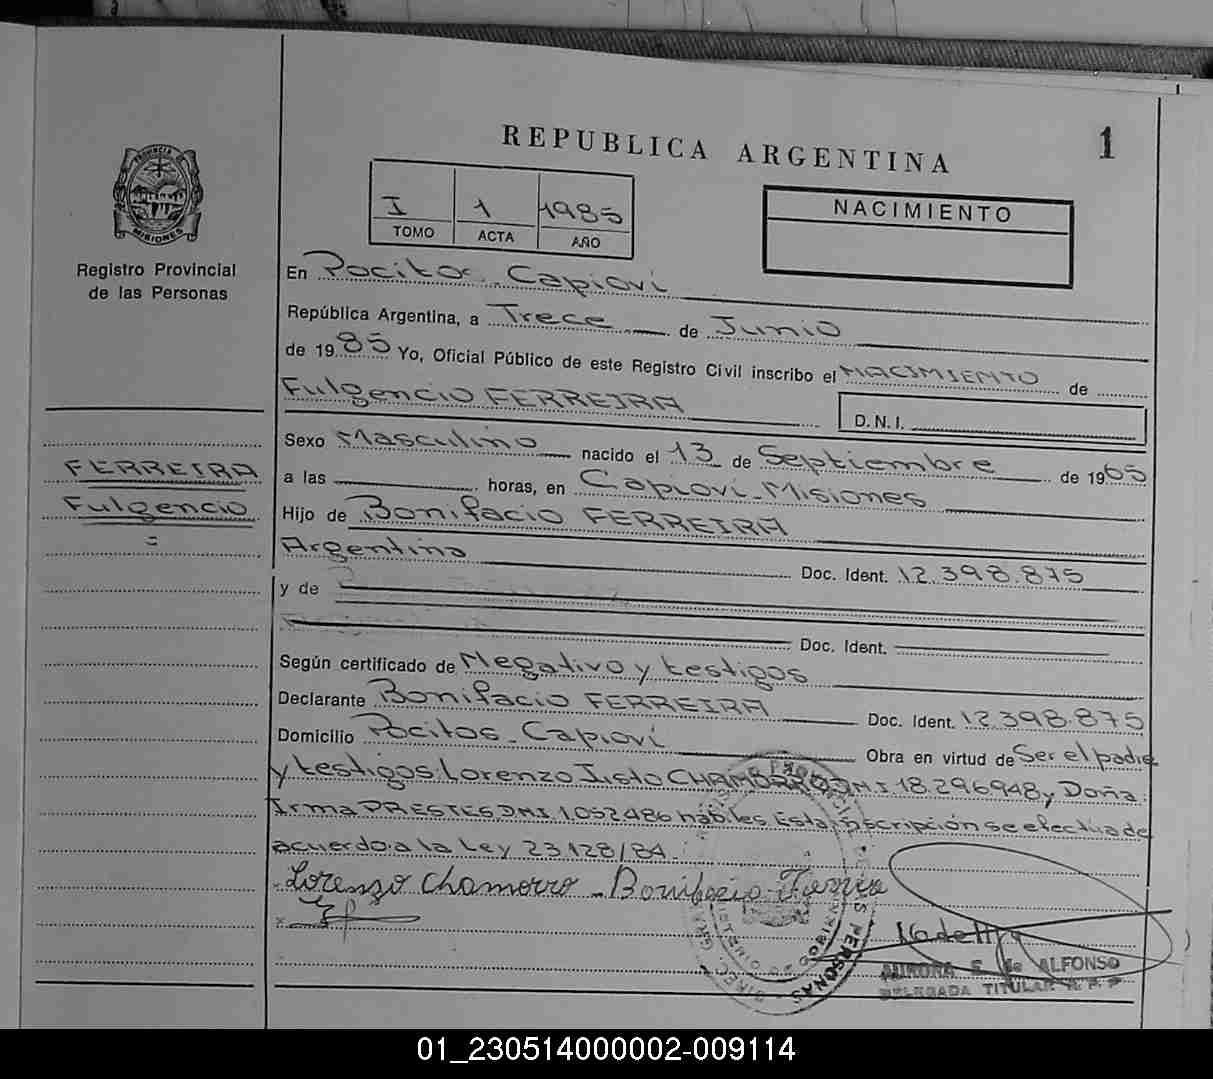 REPUBLICA ARGENTINA
1
PROVINCIA DE
MISIONES
Registro Provincial
de las Personas
I 1 1985
TOMO ACTA AÑO
NACIMIENTO
En Pocitos - Capioví
República Argentina, a Trece de Junio
de 1985 Yo, Oficial Público de este Registro Civil inscribo el NACIMIENTO de
Fulgencio FERREIRA
D.N.I.
Sexo Masculino nacido el 13 de Septiembre de 1965
a las horas, en Capioví - Misiones
Hijo de Bonifacio FERREIRA
Argentina Doc. Ident. 12.398.875
y de
Doc. Ident.
FERREIRA
Fulgencio
=
Según certificado de Negativo y testigos
Declarante Bonifacio FERREIRA Doc. Ident. 12.398.875
Domicilio Pocitos - Capioví Obra en virtud de Ser el padre
y testigos Lorenzo Justo CHAMORRO DNI 18.296948 y Doña
Irma PRESTES DNI 1.052486 hábiles Esta inscripción se efectúa de
acuerdo a la Ley 23.128/84.
Lorenzo Chamorro - Bonifacio Ferreira
AURORA E. de ALFONSO
DELEGADA TITULAR R. P. P
PERSONAS
01_230514000002-009114